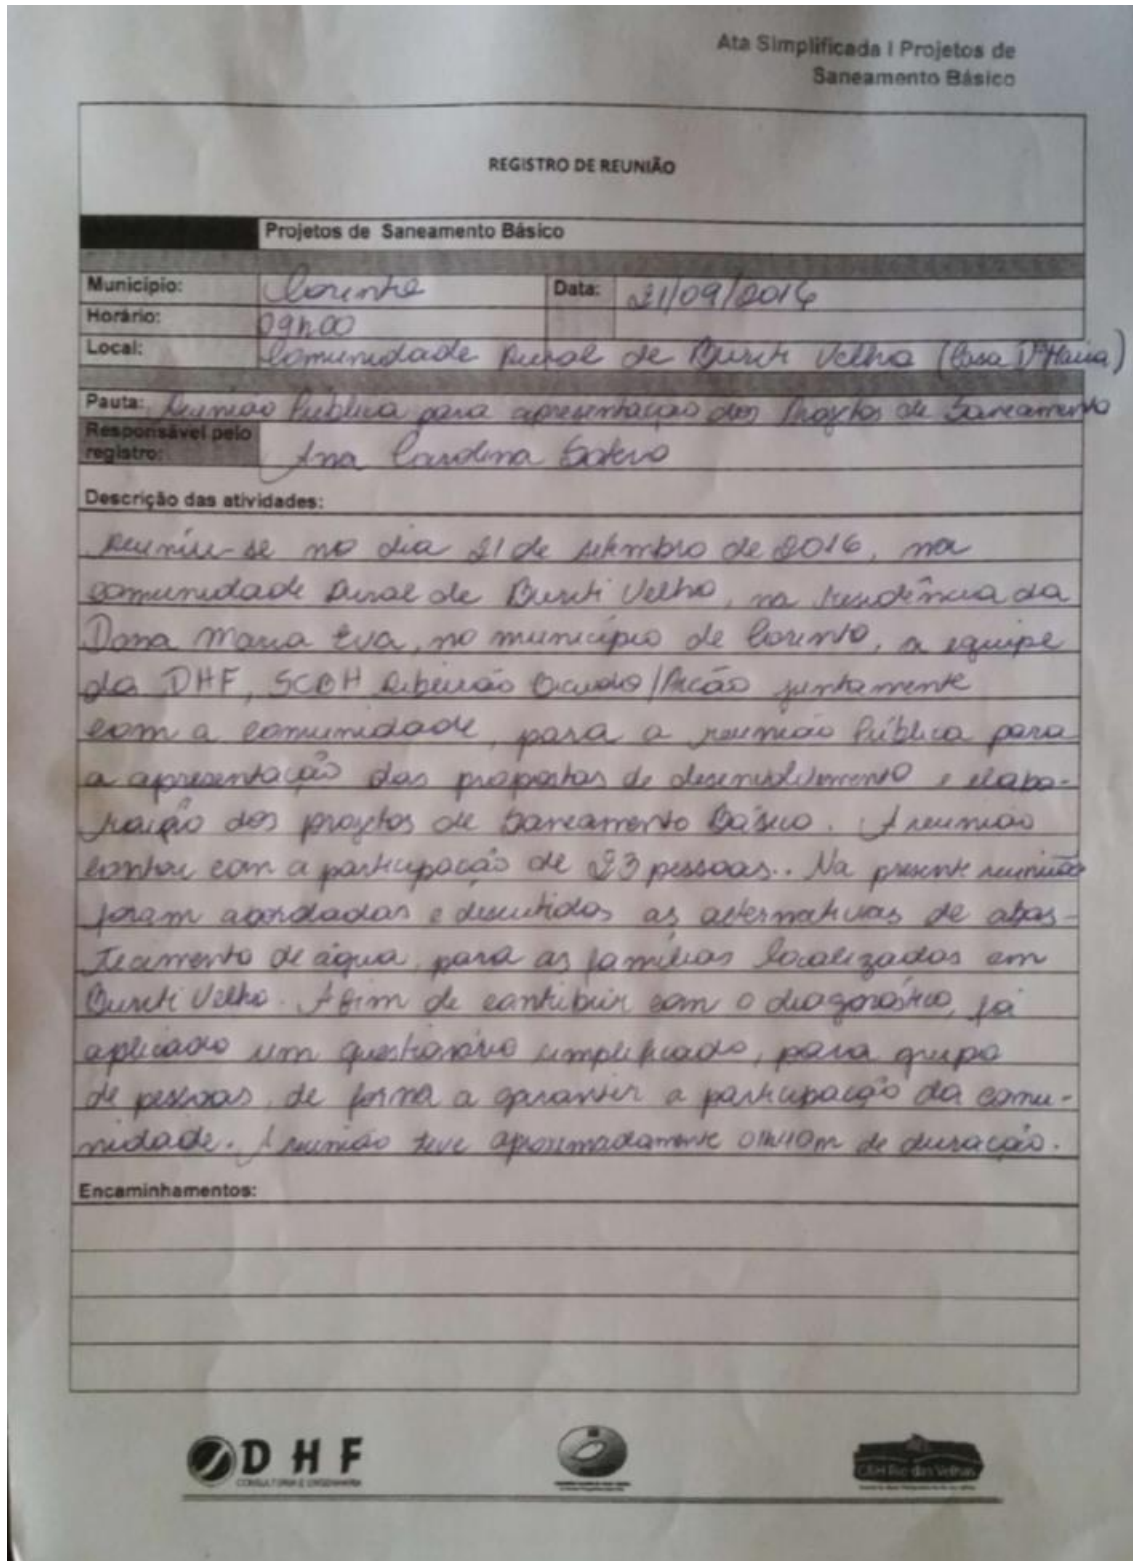 Ata Simplificada I Projetos de
Saneamento Básico
REGISTRO DE REUNIÃO
Projetos de Saneamento Básico
Município: Corinto Data: 21/09/2016
Horário: 09h00
Local: Comunidade Rural de Buriti Velho (Casa Dª Maria)
Pauta: Reunião Pública para apresentação dos Projetos de Saneamento
Responsável pelo
registro: Ana Carolina
Descrição das atividades:
Reuniu-se no dia 21 de setembro de 2016, na
comunidade Rural de Buriti Velho, na residência da
Dona Maria Eva, no município de Corinto, a equipe
da DHF, SCBH Ribeirão Bicudo/Picão juntamente
com a comunidade, para a reunião Pública para
a apresentação das propostas de desenvolvimento e elabo-
ração dos projetos de Saneamento Básico. A reunião
contou com a participação de 23 pessoas.. Na presente reunião
foram abordadas e discutidos as alternativas de abas-
tecimento de água, para as famílias localizados em
Buriti Velho. Afim de contibuir com o diagnóstico, foi
aplicado um questionário simplificado, para grupo
de pessoas, de forma a garantir a participação da comu-
nidade. A reunião teve aproximadamente 01h40m de duração.
Encaminhamentos:
DHF
CONSULTORIA E ENGENHARIA
CBH Rio das Velhas